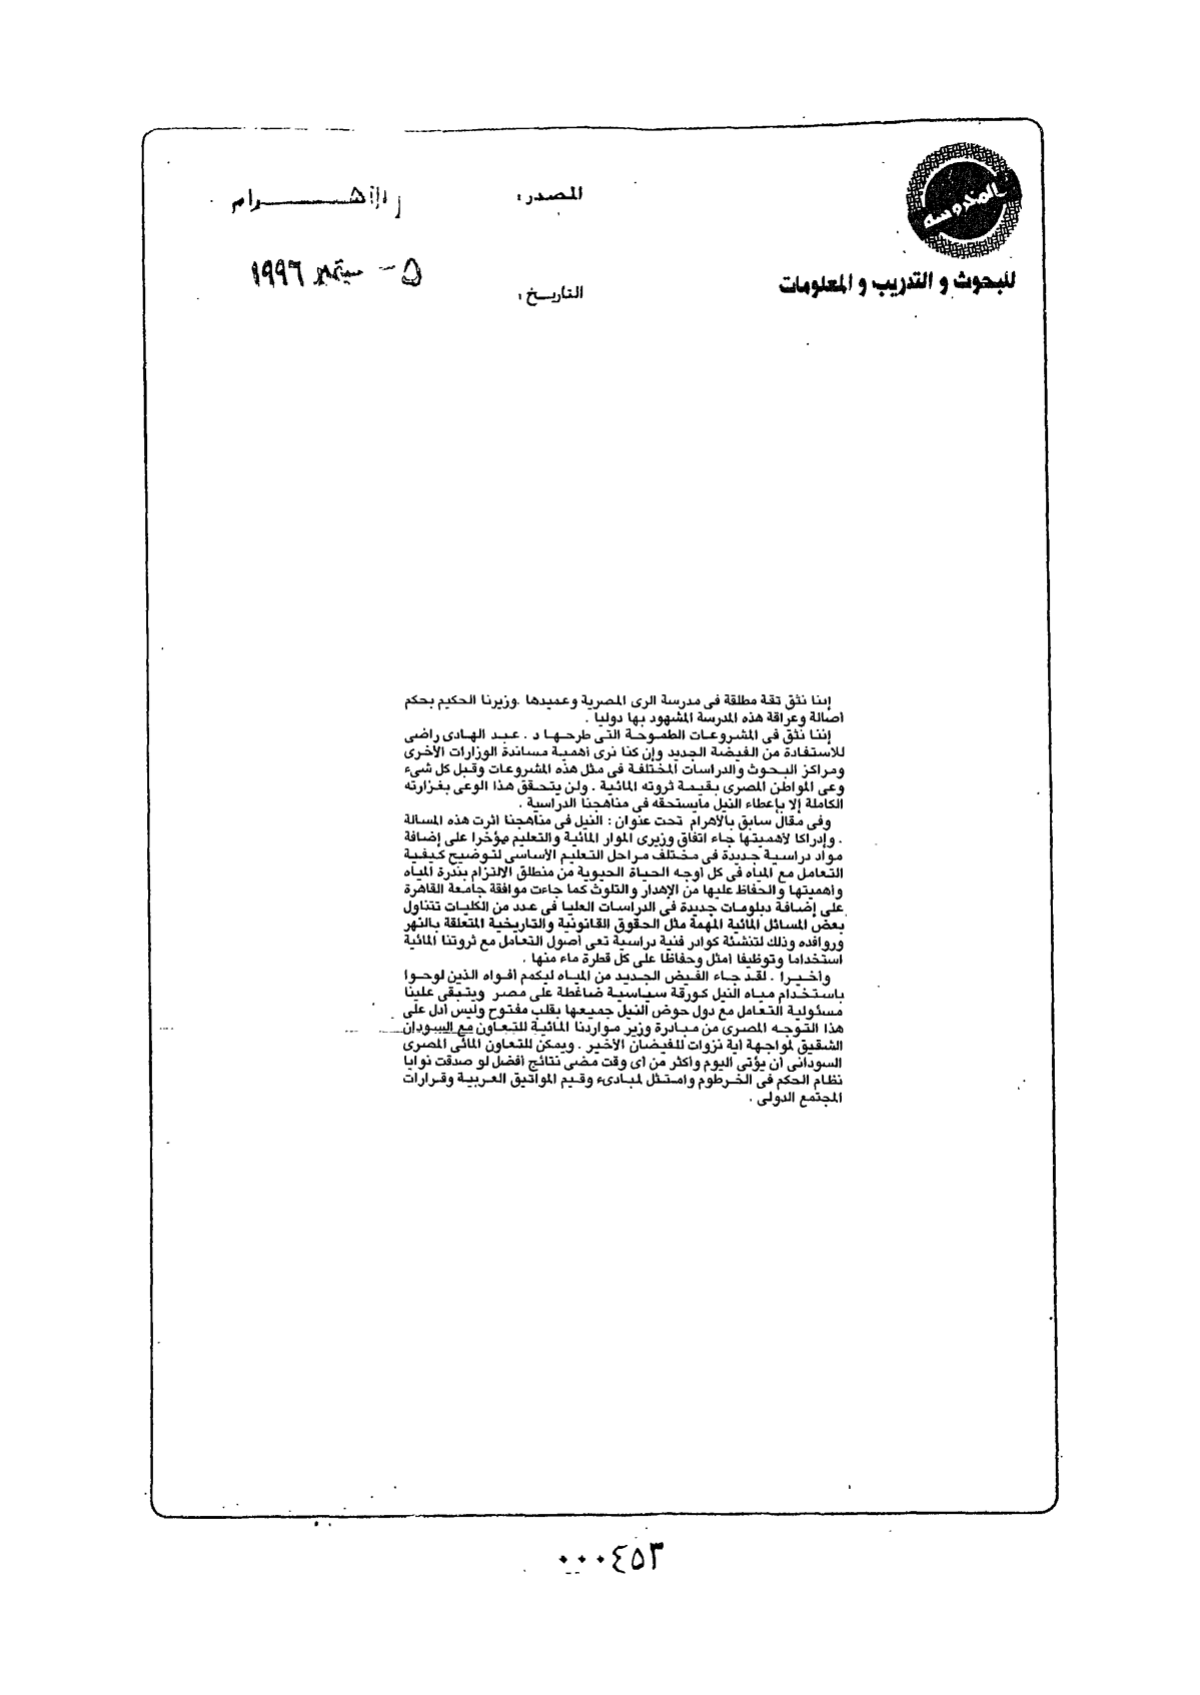 المحروسة
للبحوث و التدريب و المعلومات
المصدر : الأهرام
التاريخ : ٥ - سبتمبر ١٩٩٦
إننا نثق ثقة مطلقة فى مدرسة الرى المصرية وعميدها .وزيرنا الحكيم بحكم
أصالة وعراقة هذه المدرسة المشهود بها دوليا .
إننا نثق فى المشروعات الطموحة التى طرحها د . عبد الهادى راضى
للاستفادة من الفيضة الجديد وإن كنا نرى أهمية مساندة الوزارات الأخرى
ومراكز البحوث والدراسات المختلفة فى مثل هذه المشروعات وقبل كل شىء
وعى المواطن المصرى بقيمة ثروته المائية . ولن يتحقق هذا الوعى بغزارته
الكاملة إلا بإعطاء النيل مايستحقه فى مناهجنا الدراسية .
وفى مقال سابق بالأهرام تحت عنوان : النيل فى مناهجنا أثرت هذه المسالة
. وإدراكا لأهميتها جاء اتفاق وزيرى الموار المائية والتعليم مؤخرا على إضافة
مواد دراسية جديدة فى مختلف مراحل التعليم الأساسى لتوضيح كيفية
التعامل مع المياه فى كل أوجه الحياة الحيوية من منطلق الالتزام بندرة المياه
وأهميتها والحفاظ عليها من الإهدار والتلوث كما جاءت موافقة جامعة القاهرة
على إضافة دبلومات جديدة فى الدراسات العليا فى عدد من الكليات تتناول
بعض المسائل المائية المهمة مثل الحقوق القانونية والتاريخية المتعلقة بالنهر
وروافده وذلك لتنشئة كوادر فنية دراسية تعى أصول التعامل مع ثروتنا المائية
استخداما وتوظيفا أمثل وحفاظا على كل قطرة ماء منها .
وأخيرا . لقد جاء الفيض الجديد من المياه ليكمم أفواه الذين لوحوا
باستخدام مياه النيل كورقة سياسية ضاغطة على مصر ويتبقى علينا
مسئولية التعامل مع دول حوض النيل جميعها بقلب مفتوح وليس أدل على
هذا التوجه المصرى من مبادرة وزير مواردنا المائية للتعاون مع السودان
الشقيق لمواجهة أية نزوات للفيضان الأخير . ويمكن للتعاون المائى المصرى
السودانى أن يؤتى اليوم وأكثر من أى وقت مضى نتائج أفضل لو صدقت نوايا
نظام الحكم فى الخرطوم وامتثل لمبادىء وقيم المواثيق العربية وقرارات
المجتمع الدولى .
٠٠٠٤٥٣